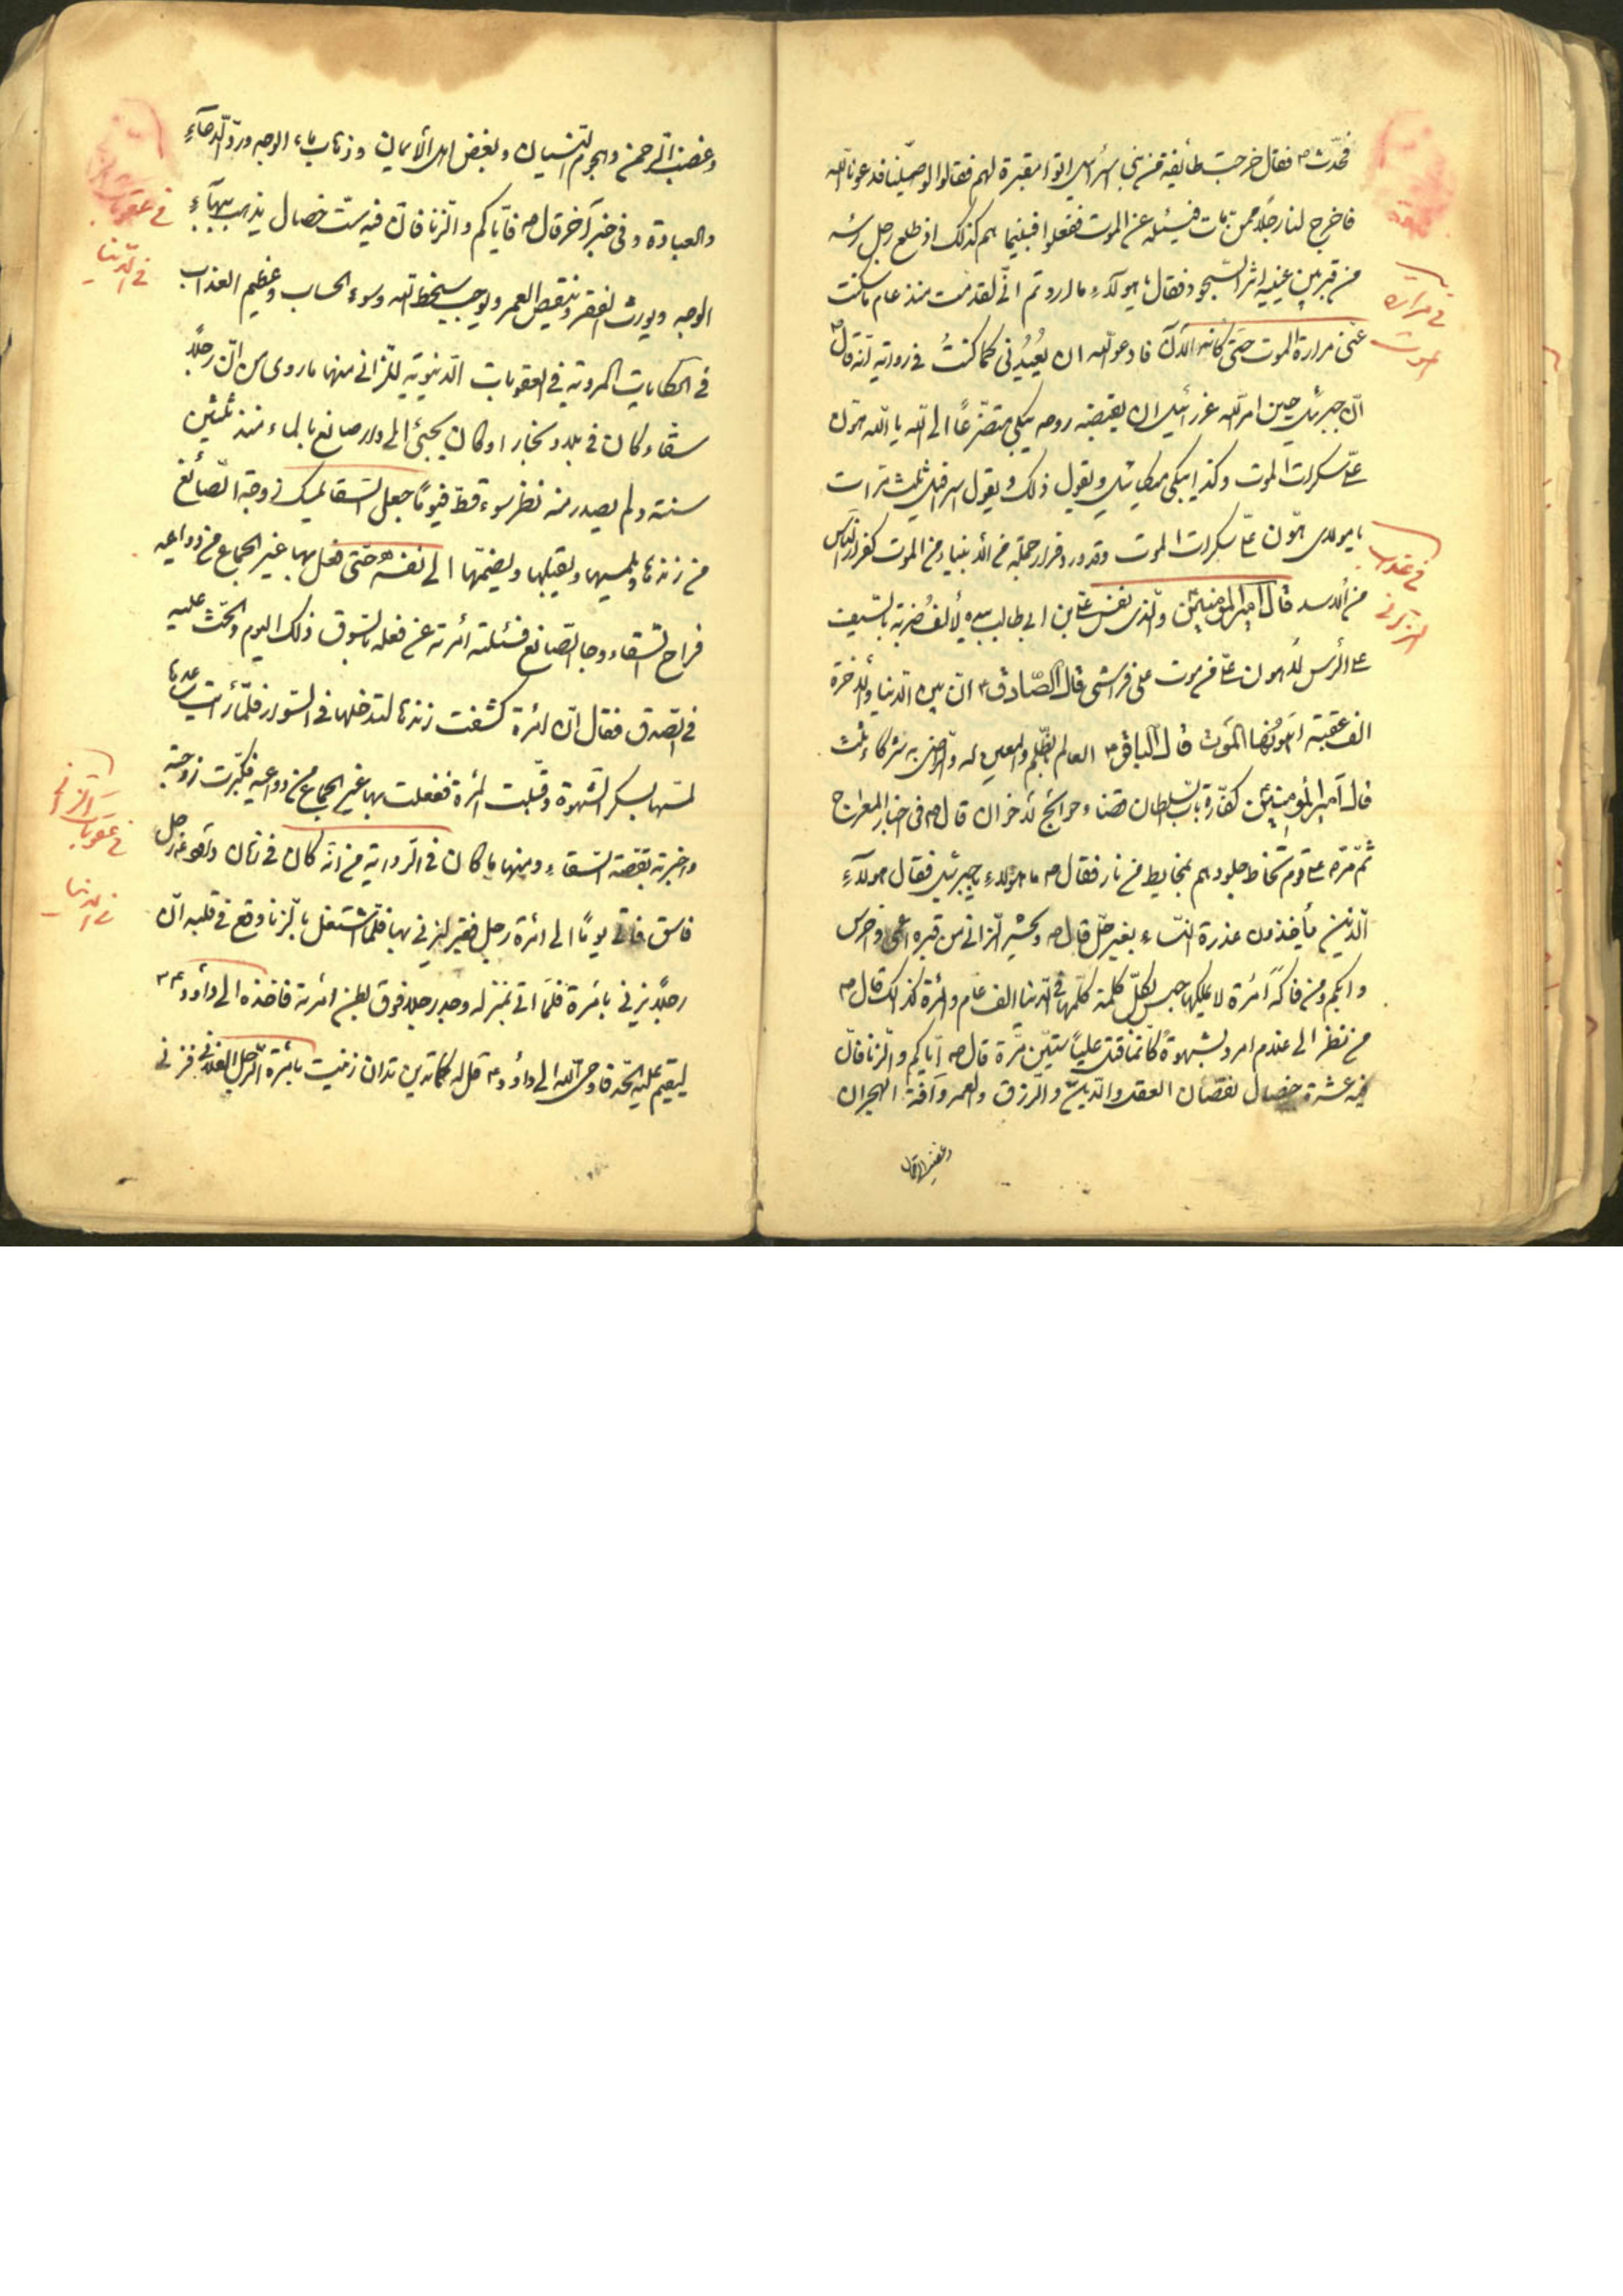 فحدّث ص فقال خرجت طائفة من بنی اسرائیل اتوا مقبرة لهم فقالوا لو صلّینا فدعونا اللّه
فاخرج لنا رجلا ممن مات فنسئله عن الموت ففعلوا فبینما هم کذلک اذ طلع رجل راسه
من قبر بین عینیه اثر السّجود فقال یا هولآء ما اردتم انّی لقد متّ منذ عام ما سکنت
عنّی مرارة الموت حتّی کانه الآن فادعوا اللّه ان یُعیدُنی کما کنتُ فی روایة انّه قال
انّ جبرئیل حین امر اللّه عزرائیل ان یقبض روحه یبکی متضرّعًا الی اللّه یا اللّه هوّن
علیّ سکرات الموت وکذا یبکی میکائیل ویقول ذلک ویقول اسرافیل ثلث مرّات
یا مولای هوّن علیّ سکرات الموت وقد ورد فرار جملة من الأنبیاء من الموت کفرار النّاس
من الأسد قال امیر المؤمنین والّذی نفس علیّ بن ابی طالب بیده لألف ضربة بالسّیف
علی الرأس لأهون علیّ من موت علی فراشی قال الصّادق ع انّ بین الدّنیا والأخرة
الف عقبة اهونُها الموت قال الباقر ع العامل بالظّلم والمعین له والرّاضی به شرکاء ثلث
قال امیر المؤمنین کفّارة باب السّلطان قضاء حوائج الاخوان قال ص فی اخبار المعراج
ثمّ مرّ علی قوم تخاط جلودهم بمخایط من نار فقال ص ما هؤلاء یا جبرئیل فقال هولآء
الّذین یأخذون عذرة النّساء بغیر حلّ قال ص ویحشر الزّانی من قبره اعمی واخرس
وابکم ومن فاکه امرئة لا یملکها حبس بکلّ کلمة کلّمها فی الدّنیا الف عام والمرئة کذلک قال ص
من نظر الی غلام امرد بشهوة کانّما قتل علیّا ستّین مرّة قال ص ایّاکم والزّنا فانّ
فیه عشرة خصال نقصان العقل والدّین والرّزق والعمر وآفة الهجران
وغضب الرّحمن
فی مرارة
الموت
فی عذاب
الزانی
وغضب الرّحمن وهجوم النّسیان وبغض اهل الأیمان وذهاب ماء الوجه وردّ الدّعآء
والعبادة وفی خبر آخر قال ص فایّاکم والزّنا فانّ فیه ستّ خصال یذهب ببهآء
الوجه ویورث الفقر وینقیص العمر ویوجب سخط اللّه وسوء الحساب وعظیم العذاب
فی الحکایات المرویة فی العقوبات الدّنیویة للزّانی منها ما روی من انّ رجلًا
سقاء کان فی بلد وبخارا وکان یجیئ الی دار صانع بالماء منذ ثلثین
سنة ولم یصدر منه نظر سوء قطّ فیومًا جعل السّقا یمسک فی زوجة الصّائغ
من زندها ویلمسها ویقبّلها ویضمّها الی نفسه حتّی فعل بها غیر الجماع من دواعیه
فراح السّقاء وجا الصّانع فسئلته امرئته عن فعله بالسّوق ذلک الیوم والحّت علیه
فی الصّدق فقال انّ امرئة کشفت زندها لتدخلها فی السّوار فلمّا رأیت یدها
لمستها بسکر الشّهوة وقبّلت المرئة ففعلت بها غیر الجماع من دواعیه فکبّرت زوجته
واخبرته بقصّة السّقاء ومنها ما کان فی الرّوایة من انّه کان فی زمان داود رجل
فاسق فاتی یومًا الی امرئة رجل فقیر لیزنی بها فلمّا اشتغل بالزنا وقع فی قلبه انّ
رجلًا یزنی بامرئة فلمّا اتی بمنزله وجد رجلا فوق بطن امرئته فاخذه الی داود ع
لیقیم علیه الحّد فاوحی اللّه الی داود ع قل له کما تدین تدان زنیت بامرئة الرّجل الفلانی فزنی
فی عقوبات
فی الدّنیا
الزانی
فی عقوبات
فی الدنیا